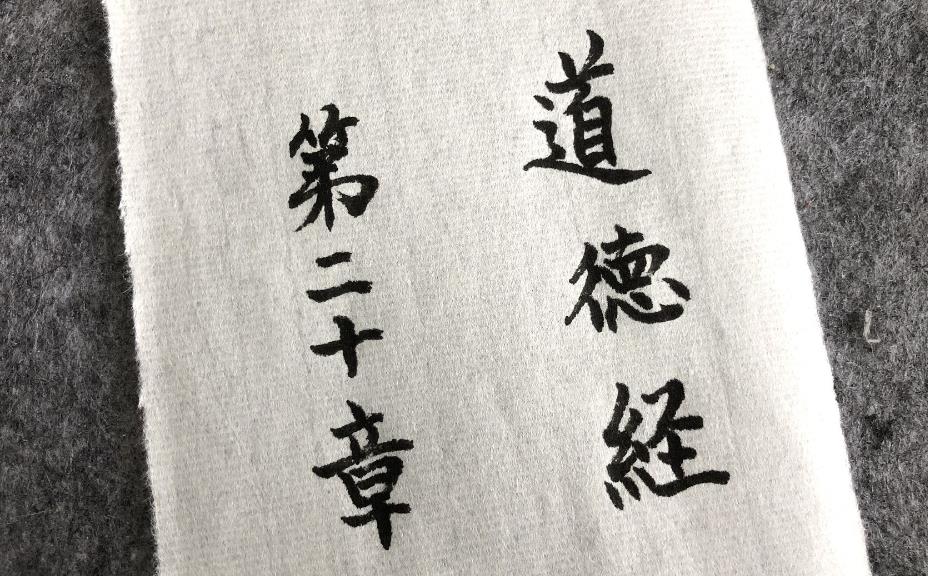 道德経
第二十章